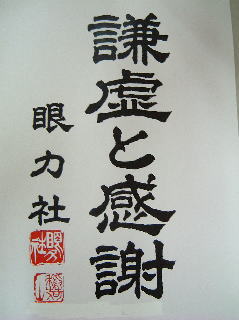 謙虚と感謝
眼力社